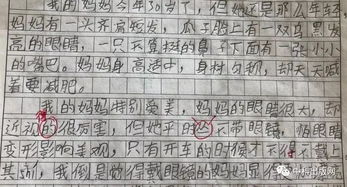 我的妈妈今年30岁了，但她还是那么年轻
妈妈有一头齐肩短发，瓜子脸上有一双乌黑发
高的眼睛，一只不算挺的鼻子下面有一张小小
的嘴巴。妈妈身高适中，身材匀称，却天天喊
着要减肥。
我的妈妈特别爱美，妈妈的眼睛很大，却
近视的很厉害，但她平时不带眼镜，怕眼睛
变形影响美观，只有开车的时候才不得不戴上
其实，我倒是觉得戴眼镜的妈妈
中科出版网